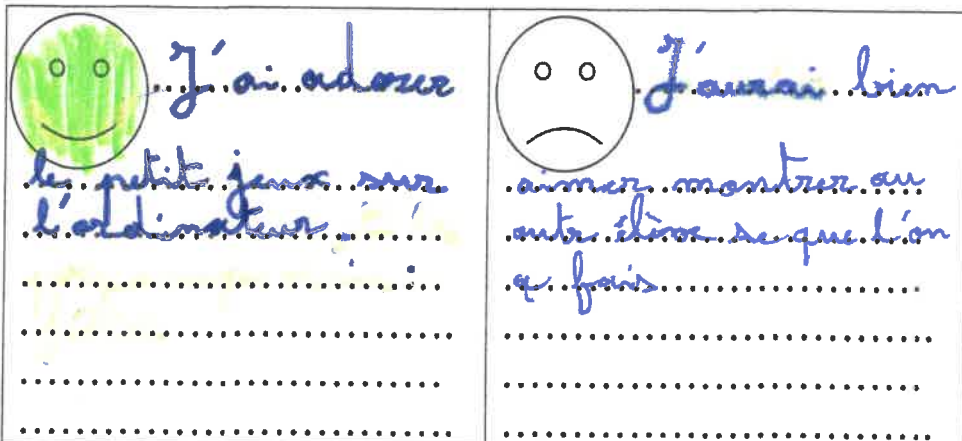 J'ai adorer
le petit jeux sur
l'ordinateur.
J'aurai bien
aimer montrer au
autr élève se que l'on
a fais